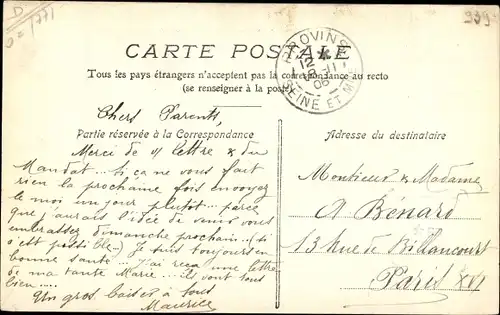 CARTE POSTALE
Tous les pays étrangers n'acceptent pas la correspondance au recto
(se renseigner à la poste)
PROVINS
SEINE ET MNE
Partie réservée à la Correspondance
Adresse du destinataire
Chers Parents,
Merci de vs lettre & du
Mandat... Si ça ne vous fait
rien la prochaine fois envoyez
le moi un jour plutot... parce
que j'aurais l'idée de venir vous
embrasser dimanche prochain.. (si
c'est possible..) Je suis toujours en
bonne santé... J'ai reçu une lettre
de ma tante Marie... ils vont tous
bien....
Un gros baiser à tous
Maurice
Monsieur & Madame
A Bénard
13 Rue de Billancourt
Paris XVI